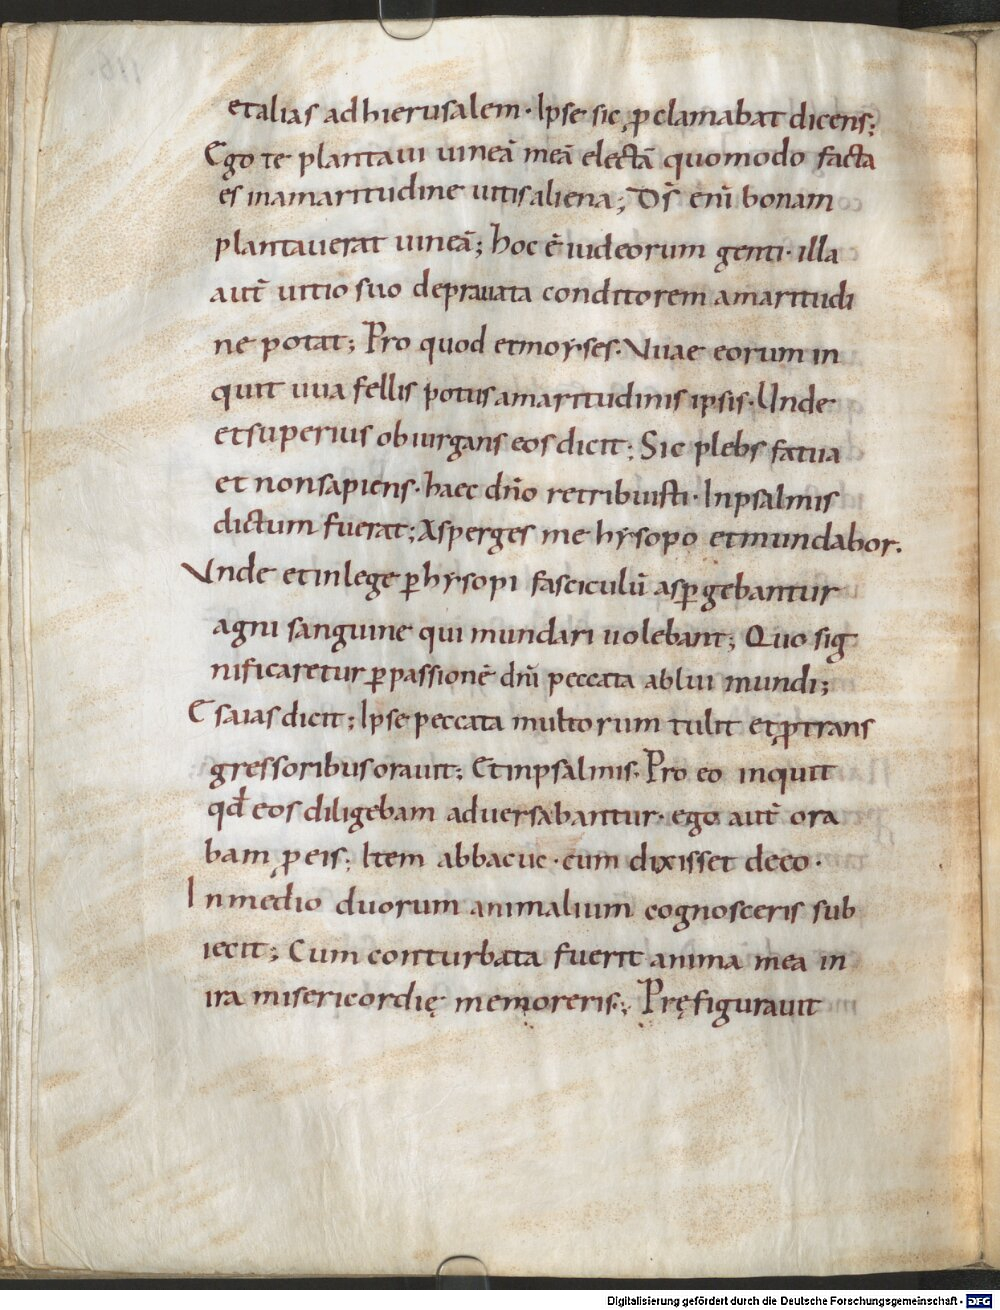 et alias ad hierusalem · Ipse sic ꝓclamabat dicens;
Ego te plantaui uineā meā electā quomodo facta
es in amaritudine uitis aliena; Dꝰs̄ enī bonam
plantauerat uineā; hoc ē iudeorum genti · illa
aut̄ uitio suo deprauata conditorem amaritudi
ne potat; Pro quod et moyses · Vuae eorum in
quit uua fellis potus amaritudinis ipsis · Unde
et superius obiurgans eos dicit; Sic plebs fatua
et non sapiens · haec dn̄o retribuisti · In psalmis
dictum fuerat; Asperges me hysopo et mundabor.
Vnde et in lege ꝑ hysopi fasciculū aspꝑgebantur
agni sanguine qui mundari uolebant; Quo sig
nificaretur ꝑ passionē dn̄i peccata ablui mundi;
Esaias dicit; Ipse peccata multorum tulit et ꝓ trans
gressoribus orauit; Et in psalmis · Pro eo inquit
qd̄ eos diligebam aduersabantur · ego aut̄ ora
bam ꝓ eis; Item abbacuc · cum dixisset de eo ·
In medio duorum animalium cognosceris sub
iecit; Cum conturbata fuerit anima mea in
ira misericordię memoreris; Pręfigurauit
Digitalisierung gefördert durch die Deutsche Forschungsgemeinschaft - DFG